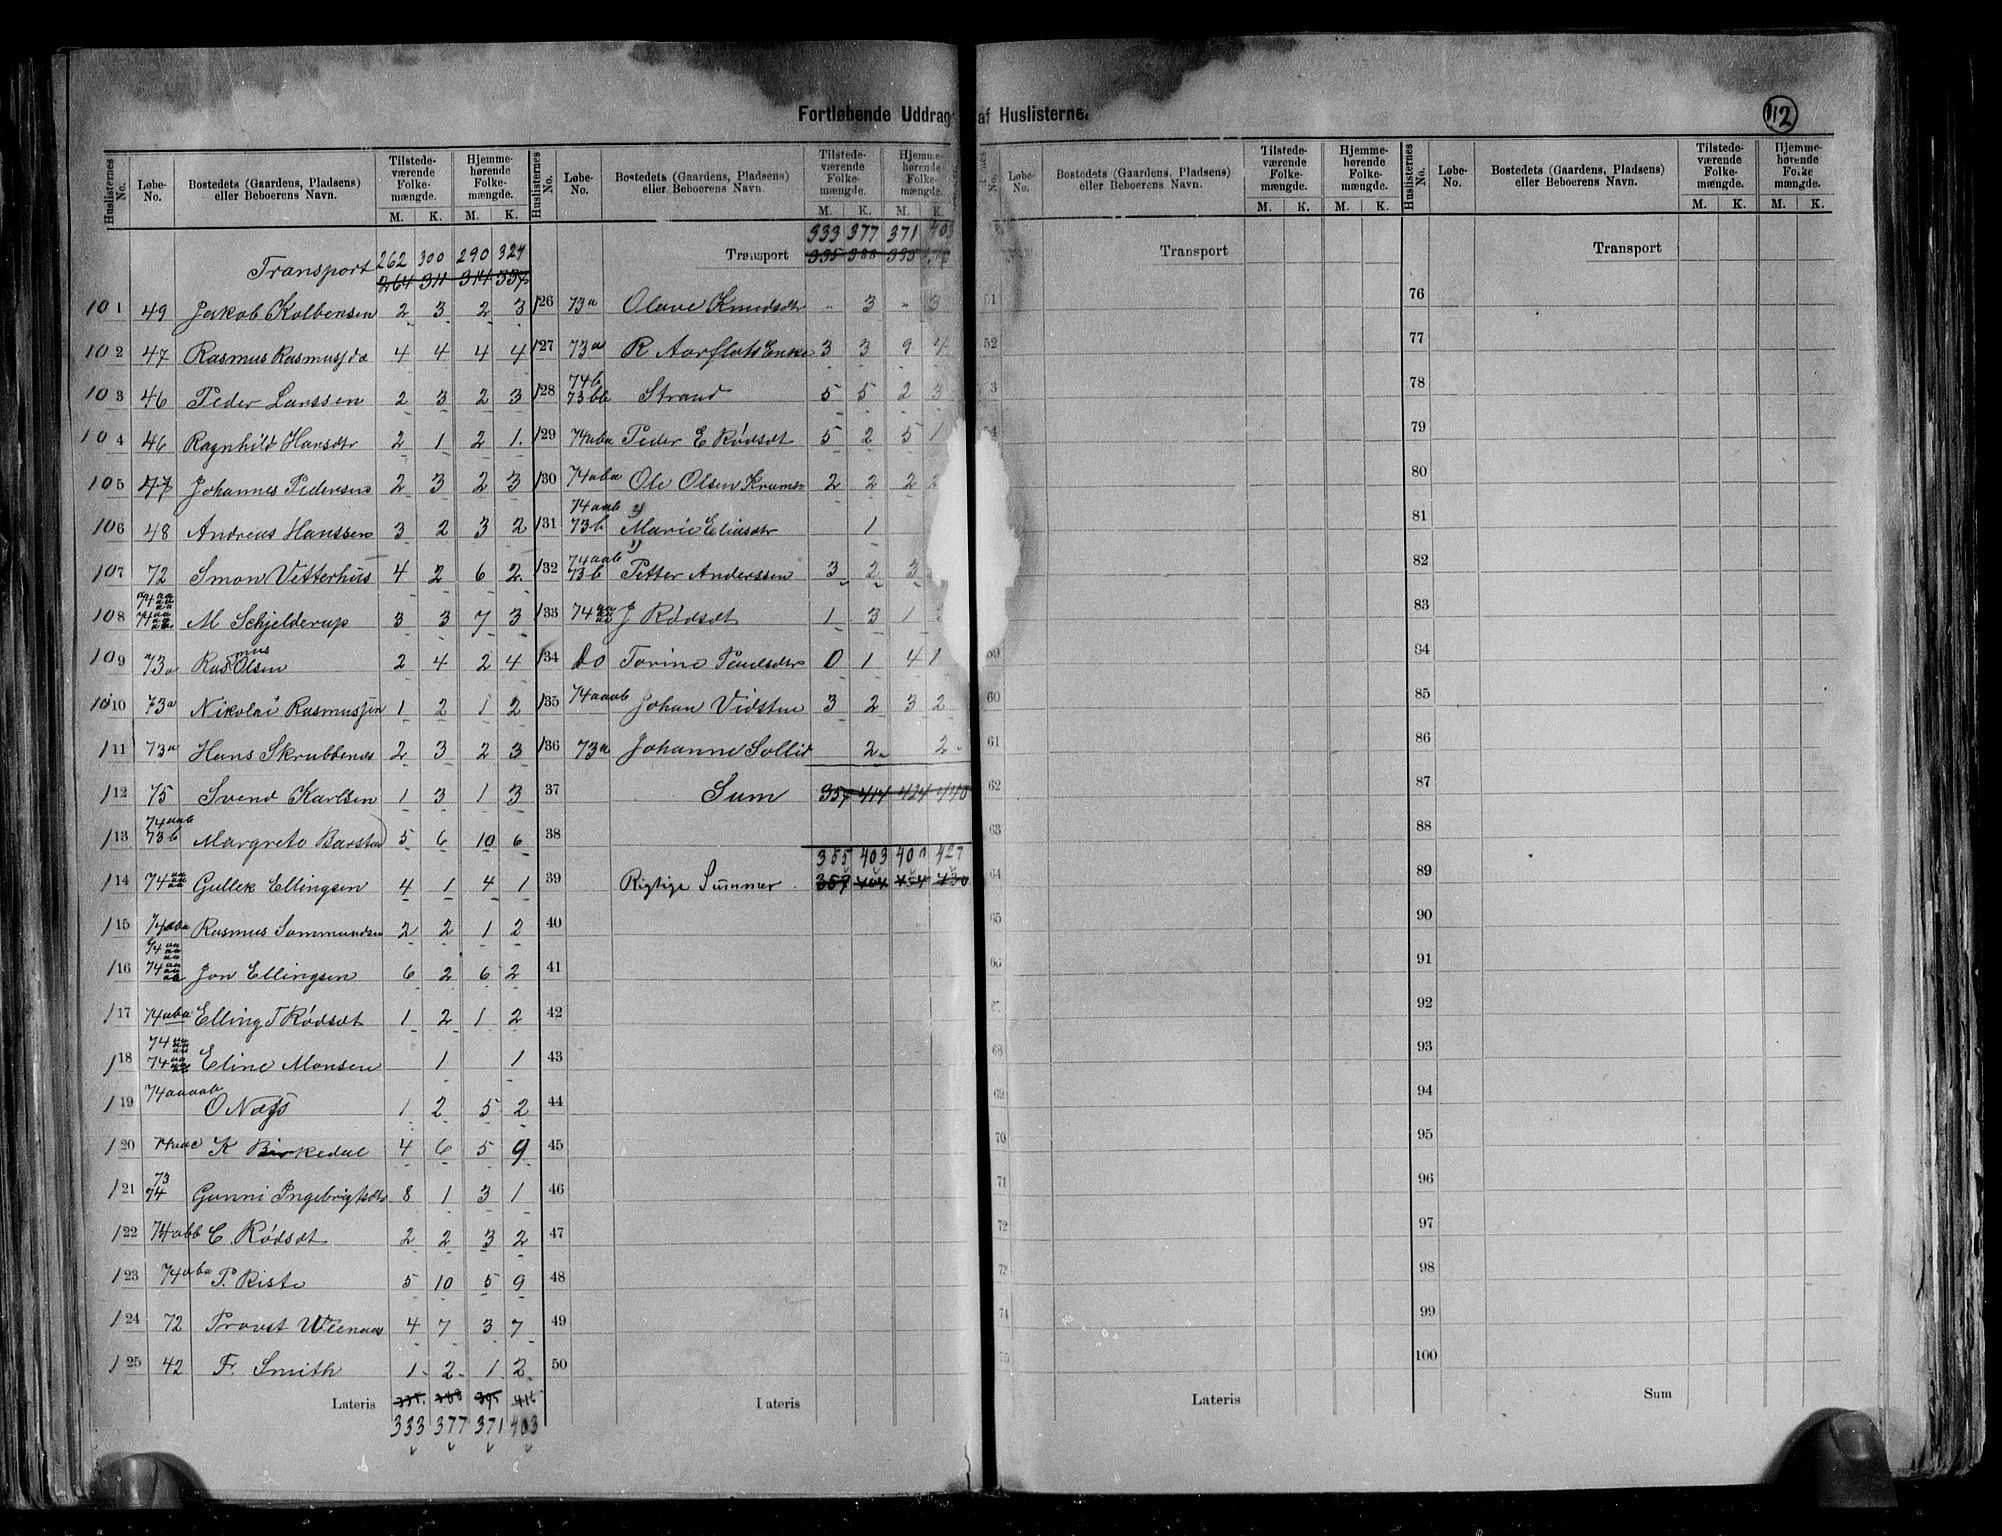 Fortløbende Uddrag af Huslisterne.
112
Huslisternes No. Løbe-No. Bostedets (Gaardens, Pladsens) eller Beboerens Navn. Tilstedeværende Folkemængde. M. K. Hjemmehørende Folkemængde. M. K.
Transport 262 300 290 324
101 49 Jakob Kolbensen 2 3 2 3
102 47 Rasmus Rasmussen 4 4 4 4
103 46 Peder Larssen 2 3 2 3
104 46 Ragnhild Hansdtr 2 1 2 1
105 47 Johannes Pedersen 2 3 2 3
106 48 Andreas Hanssen 3 2 3 2
107 72 Simon Vetterhus 4 2 6 2
108 74aa M Schjelderup 3 3 7 3
109 73a Rasmus Olsen 2 4 2 4
110 73a Nikolai Rasmussen 1 2 1 2
111 73a Hans Skrubbenes 2 3 2 3
112 75 Svend Karlsen 1 3 1 3
113 74aab 73b Margrete Barstad 5 6 10 6
114 74aa Gullek Ellingsen 4 1 4 1
115 74aba Rasmus Sammundsen 2 2 1 2
116 74aa 74aa Jon Ellingsen 6 2 6 2
117 74aba Elling T Rødsæt 1 2 1 2
118 74aa 74aa Eline Monsen 1 1
119 74aaaab O Næss 1 2 5 2
120 74aac K Birkedal 4 6 5 9
121 73 74 Gunni Ingebrigtsdtr 8 1 3 1
122 74abb C. Rødsæt 2 2 3 2
123 74aba P. Riste 5 10 5 9
124 72 Provst 4 7 3 7
125 42 Fr. Smith 1 2 1 2
Lateris 335 388 395 416
333 377 371 403
Huslisternes No. Løbe-No. Bostedets (Gaardens, Pladsens) eller Beboerens Navn. Tilstedeværende Folkemængde. M. K. Hjemmehørende Folkemængde. M. K.
333 377 371 403
Transport 335 388 395
126 73a Olave Knudsdtr 3 3
127 73a R Aarflots Enke 3 3 9 4
128 74b 73bb Strand 5 5 2 3
129 74aba Peder E Rødsæt 5 2 5 1
130 74aba Ole Olsen 2 2 2 2
131 74aab 73b Marie Eliasdtr 1
132 74aab 73b Petter Anderssen 3 2 3
133 74aa J Rødsæt 1 3 1
134 do Torine Paulsdtr 0 1 4 1
135 74aaab Johan Vidstue 3 2 3 2
136 73a Johanne Sollid 2 2
37 Sum 357 414 424 440
38
355 403 400 427
39 Rigtige Summer 357 404
40
41
42
43
44
45
46
47
48
49
50
Lateris
Løbe-No. Bostedets (Gaardens, Pladsens) eller Beboerens Navn. Tilstedeværende Folkemængde. M. K. Hjemmehørende Folkemængde. M. K.
Transport
51
52
59
60
61
62
63
64
65
66
67
68
69
70
71
72
74
75
Lateris
Huslisternes No. Løbe-No. Bostedets (Gaardens, Pladsens) eller Beboerens Navn. Tilstedeværende Folkemængde. M. K. Hjemmehørende Folkemængde. M. K.
Transport
76
77
78
79
80
81
82
83
84
85
86
87
88
89
90
91
92
93
94
95
96
97
98
99
100
Sum